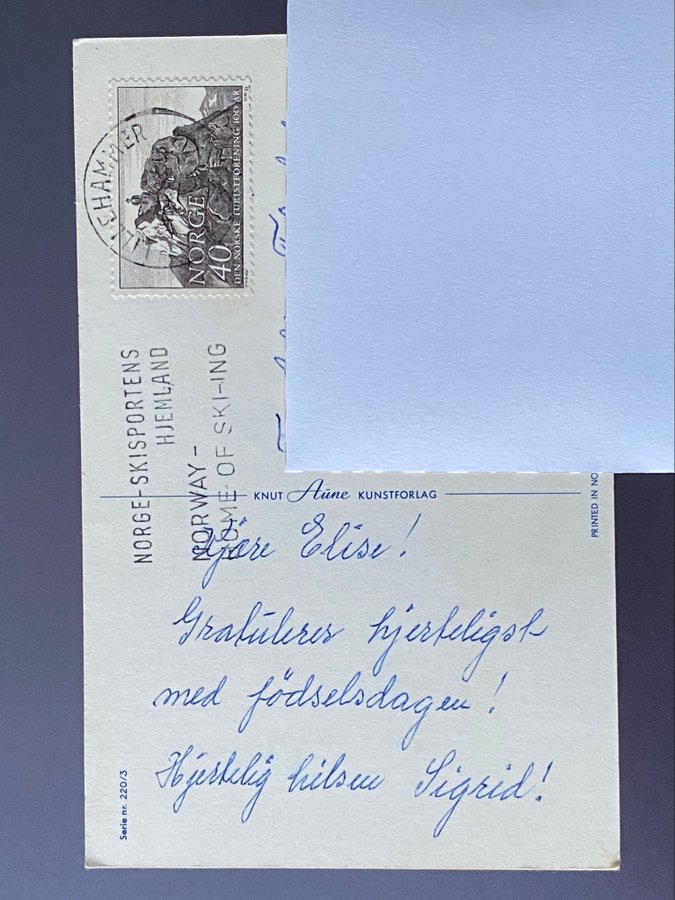 LILLEHAMMER
NORGE
40
DEN NORSKE TURISTFORENING 100 ÅR
NORGE-SKISPORTENS
HJEMLAND
NORWAY-
HOME OF SKI-ING
KNUT Aüne KUNSTFORLAG
PRINTED IN NO
Kjøre Elise!
Gratulerer hjerteligst
med födselsdagen!
Hjertelig hilsen Sigrid!
Serie nr. 220/3